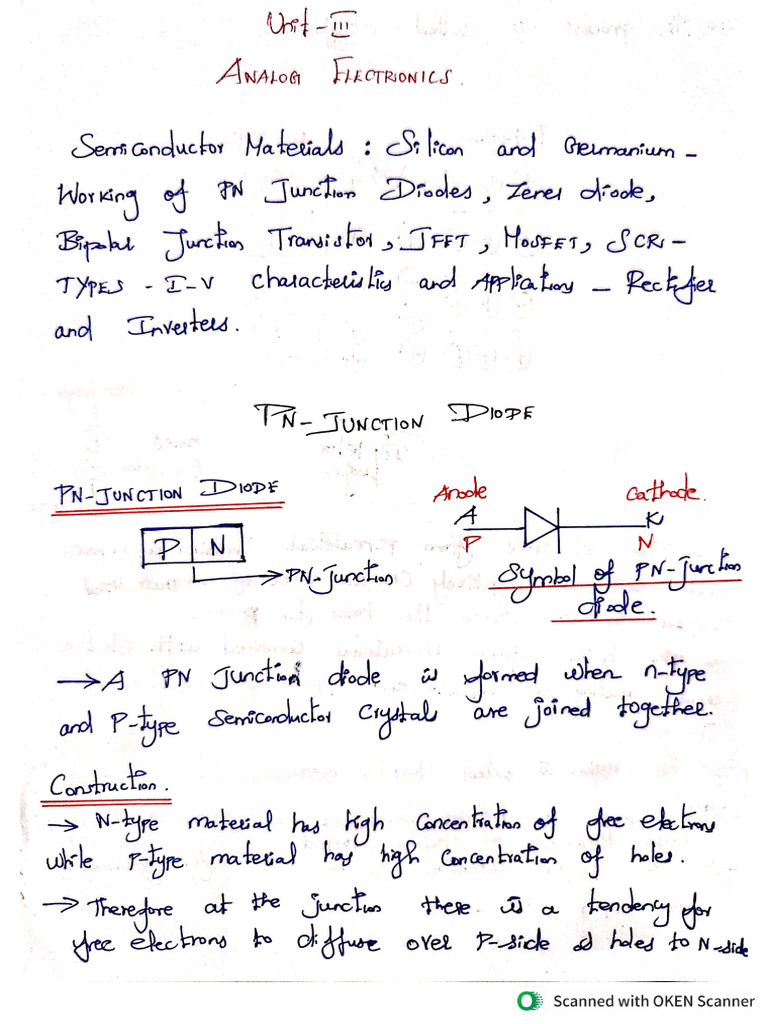 Unit-III
ANALOG ELECTRONICS.
Semiconductor Materials : Silicon and Germanium -
Working of PN Junction Diodes, Zener diode,
Bipolar Junction Transistor, JFET, MOSFET, SCR -
TYPES - I-V characteristics and Applications - Rectifier
and Inverters.
PN-JUNCTION DIODE
PN-JUNCTION DIODE
Anode Cathode.
A K
P N
P N
→ PN-Junction
Symbol of PN-Junction
diode.
→ A PN Junction diode is formed when n-type
and P-type Semiconductor Crystals are joined together.
Construction.
→ N-type material has high Concentration of free electrons
while P-type material has high Concentration of holes.
→ Therefore at the junction there is a tendency for
free electrons to diffuse over P-side & holes to N-side
Scanned with OKEN Scanner